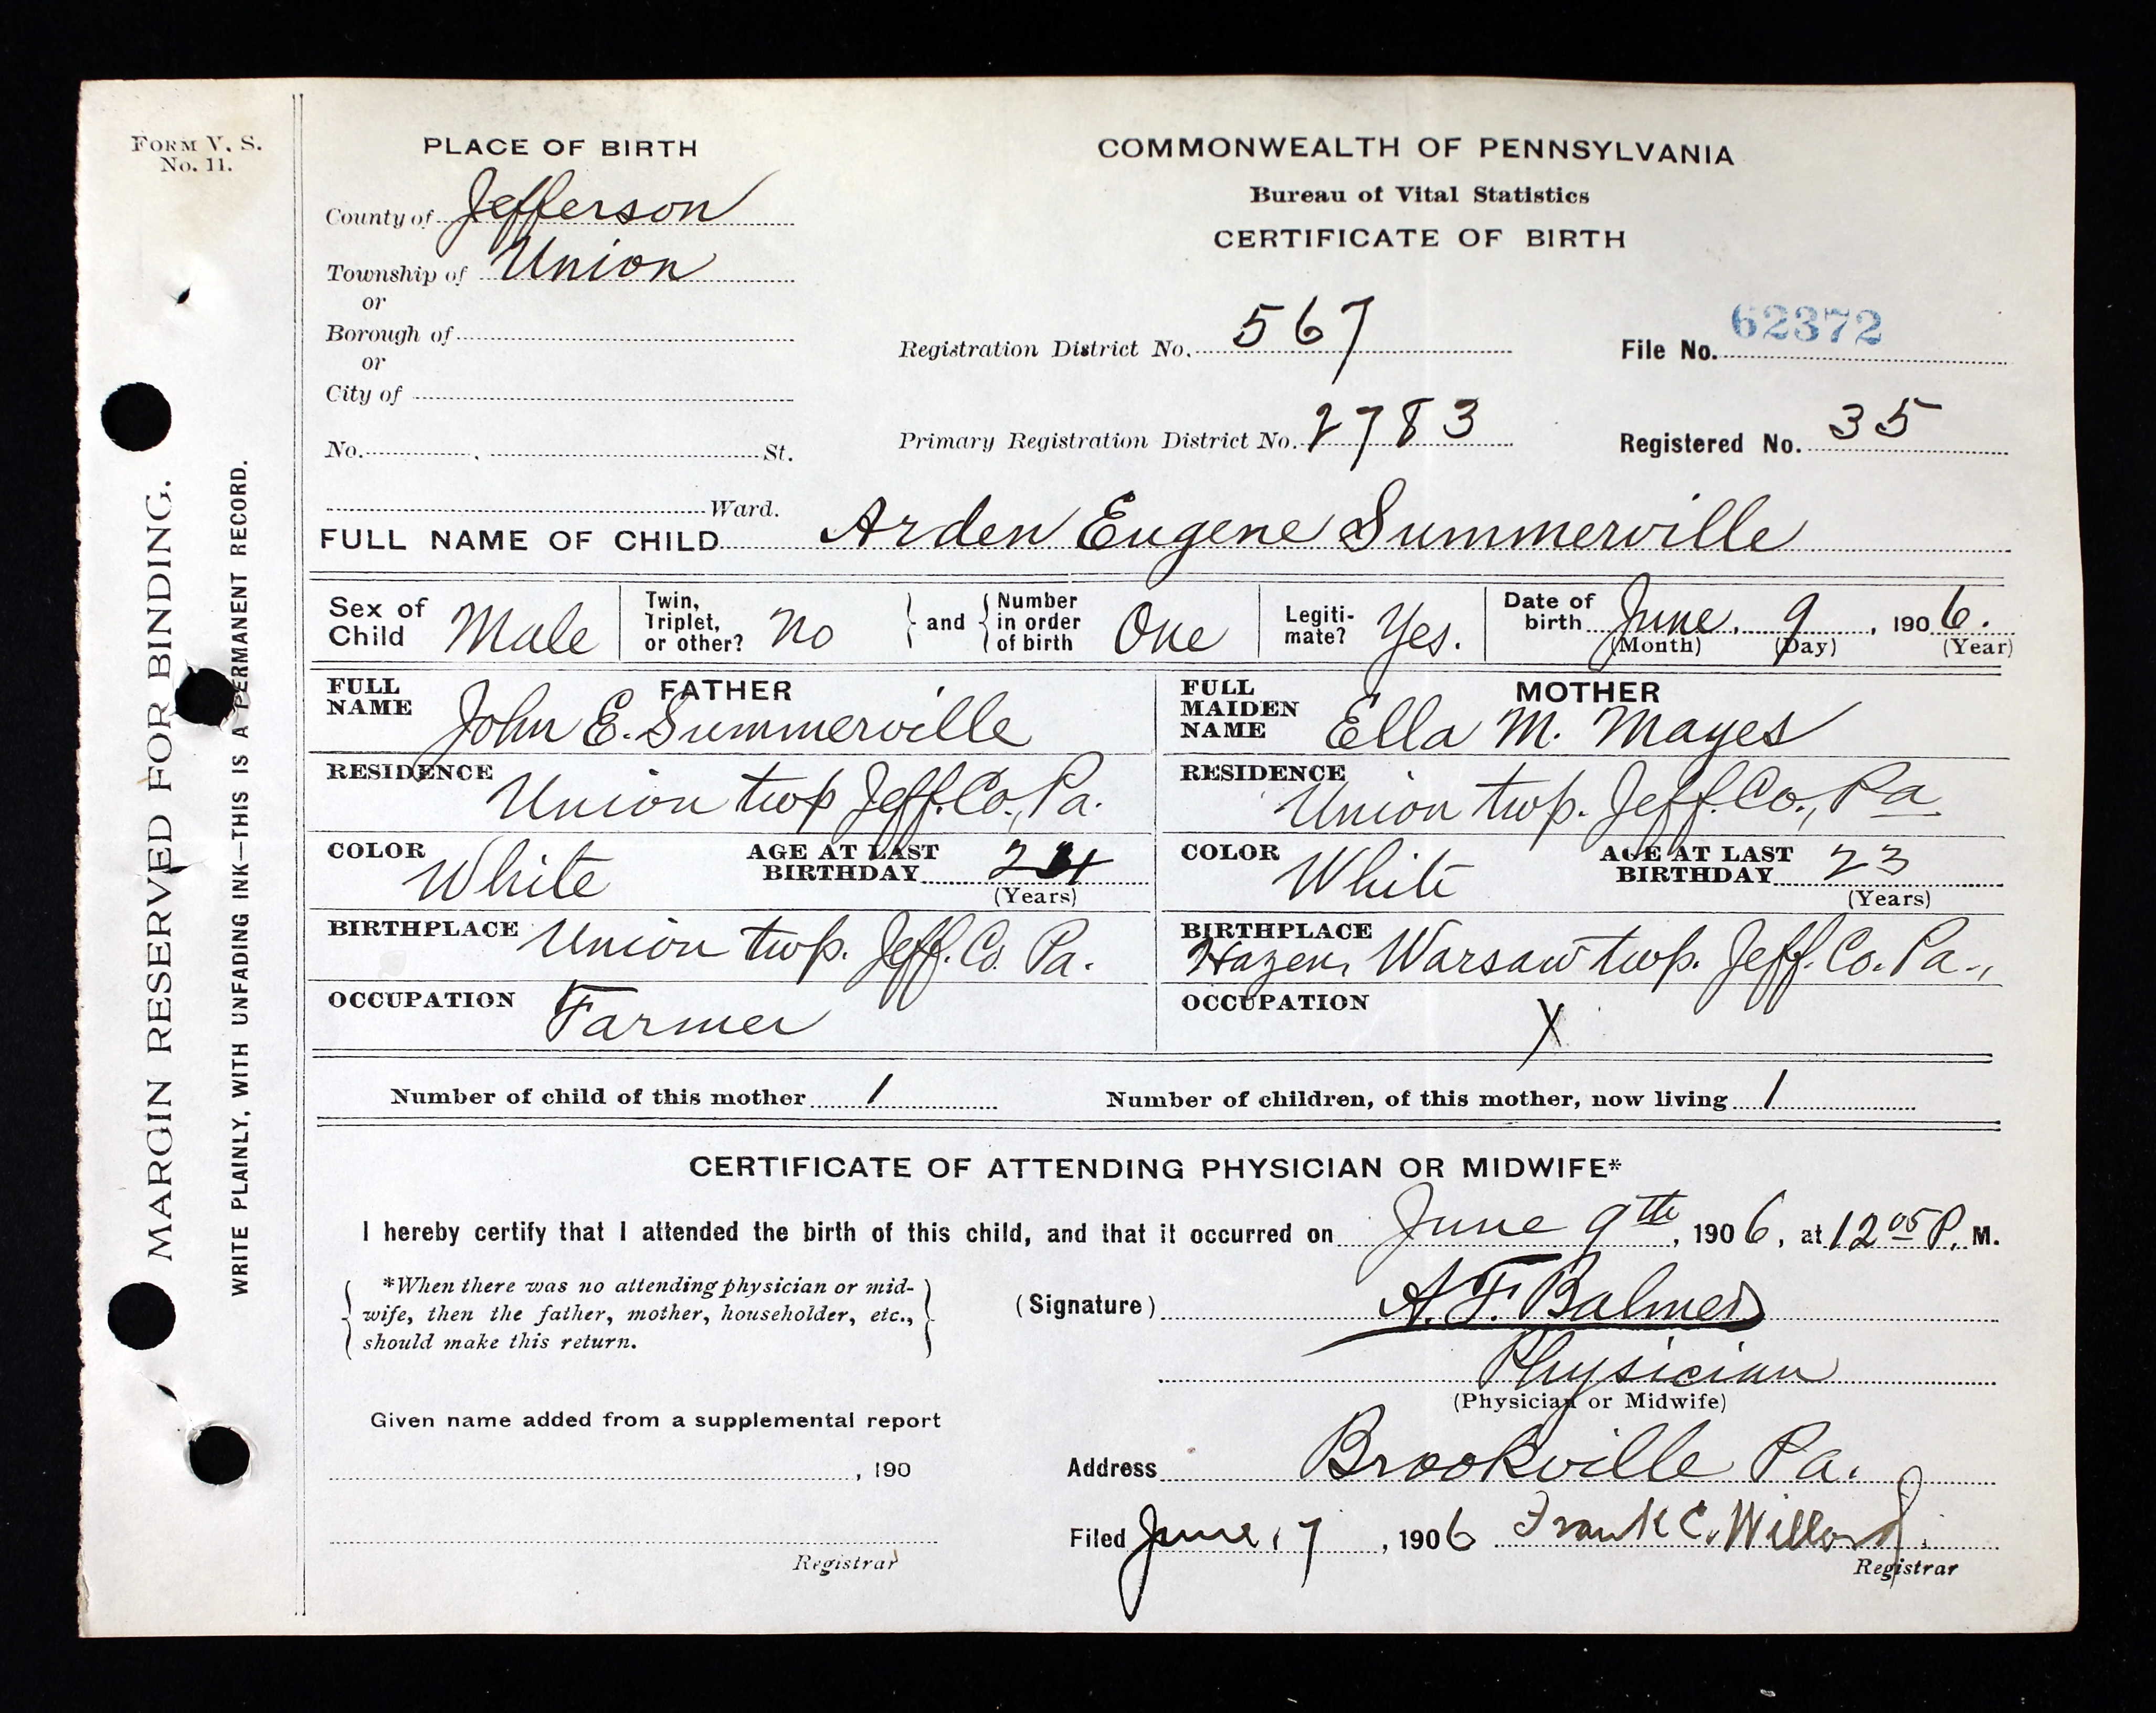 FORM V. S.
No. 11.
MARGIN RESERVED FOR BINDING.
WRITE PLAINLY, WITH UNFADING INK—THIS IS A PERMANENT RECORD.
PLACE OF BIRTH
County of Jefferson
Township of Union
or
Borough of
or
City of
No. , St.
Ward.
COMMONWEALTH OF PENNSYLVANIA
Bureau of Vital Statistics
CERTIFICATE OF BIRTH
Registration District No. 567
File No. 62372
Primary Registration District No. 2783
Registered No. 35
FULL NAME OF CHILD Arden Eugene Summerville
Sex of
Child Male
Twin,
Triplet,
or other? No
and
Number
in order
of birth One
Legiti-
mate? Yes.
Date of
birth June. 9 , 1906.
(Month) (Day) (Year)
FATHER
FULL
NAME
John E. Summerville
RESIDENCE
Union twp Jeff. Co., Pa.
COLOR
White
AGE AT LAST
BIRTHDAY 24
(Years)
BIRTHPLACE Union twp. Jeff. Co. Pa.
OCCUPATION
Farmer
MOTHER
FULL
MAIDEN
NAME
Ella M. Mayes
RESIDENCE
Union twp. Jeff. Co., Pa
COLOR
White
AGE AT LAST
BIRTHDAY 23
(Years)
BIRTHPLACE
Hazen, Warsaw twp. Jeff. Co. Pa.,
OCCUPATION
X
Number of child of this mother 1
Number of children, of this mother, now living 1
CERTIFICATE OF ATTENDING PHYSICIAN OR MIDWIFE*
I hereby certify that I attended the birth of this child, and that it occurred on June 9th, 1906, at 12 05 P. M.
*When there was no attending physician or mid-
wife, then the father, mother, householder, etc.,
should make this return.
(Signature) A. F. Balmer
Physician
(Physician or Midwife)
Given name added from a supplemental report
, 190
Registrar
Address Brookville Pa.
Filed June 17 , 1906 Frank C. Willard.
Registrar